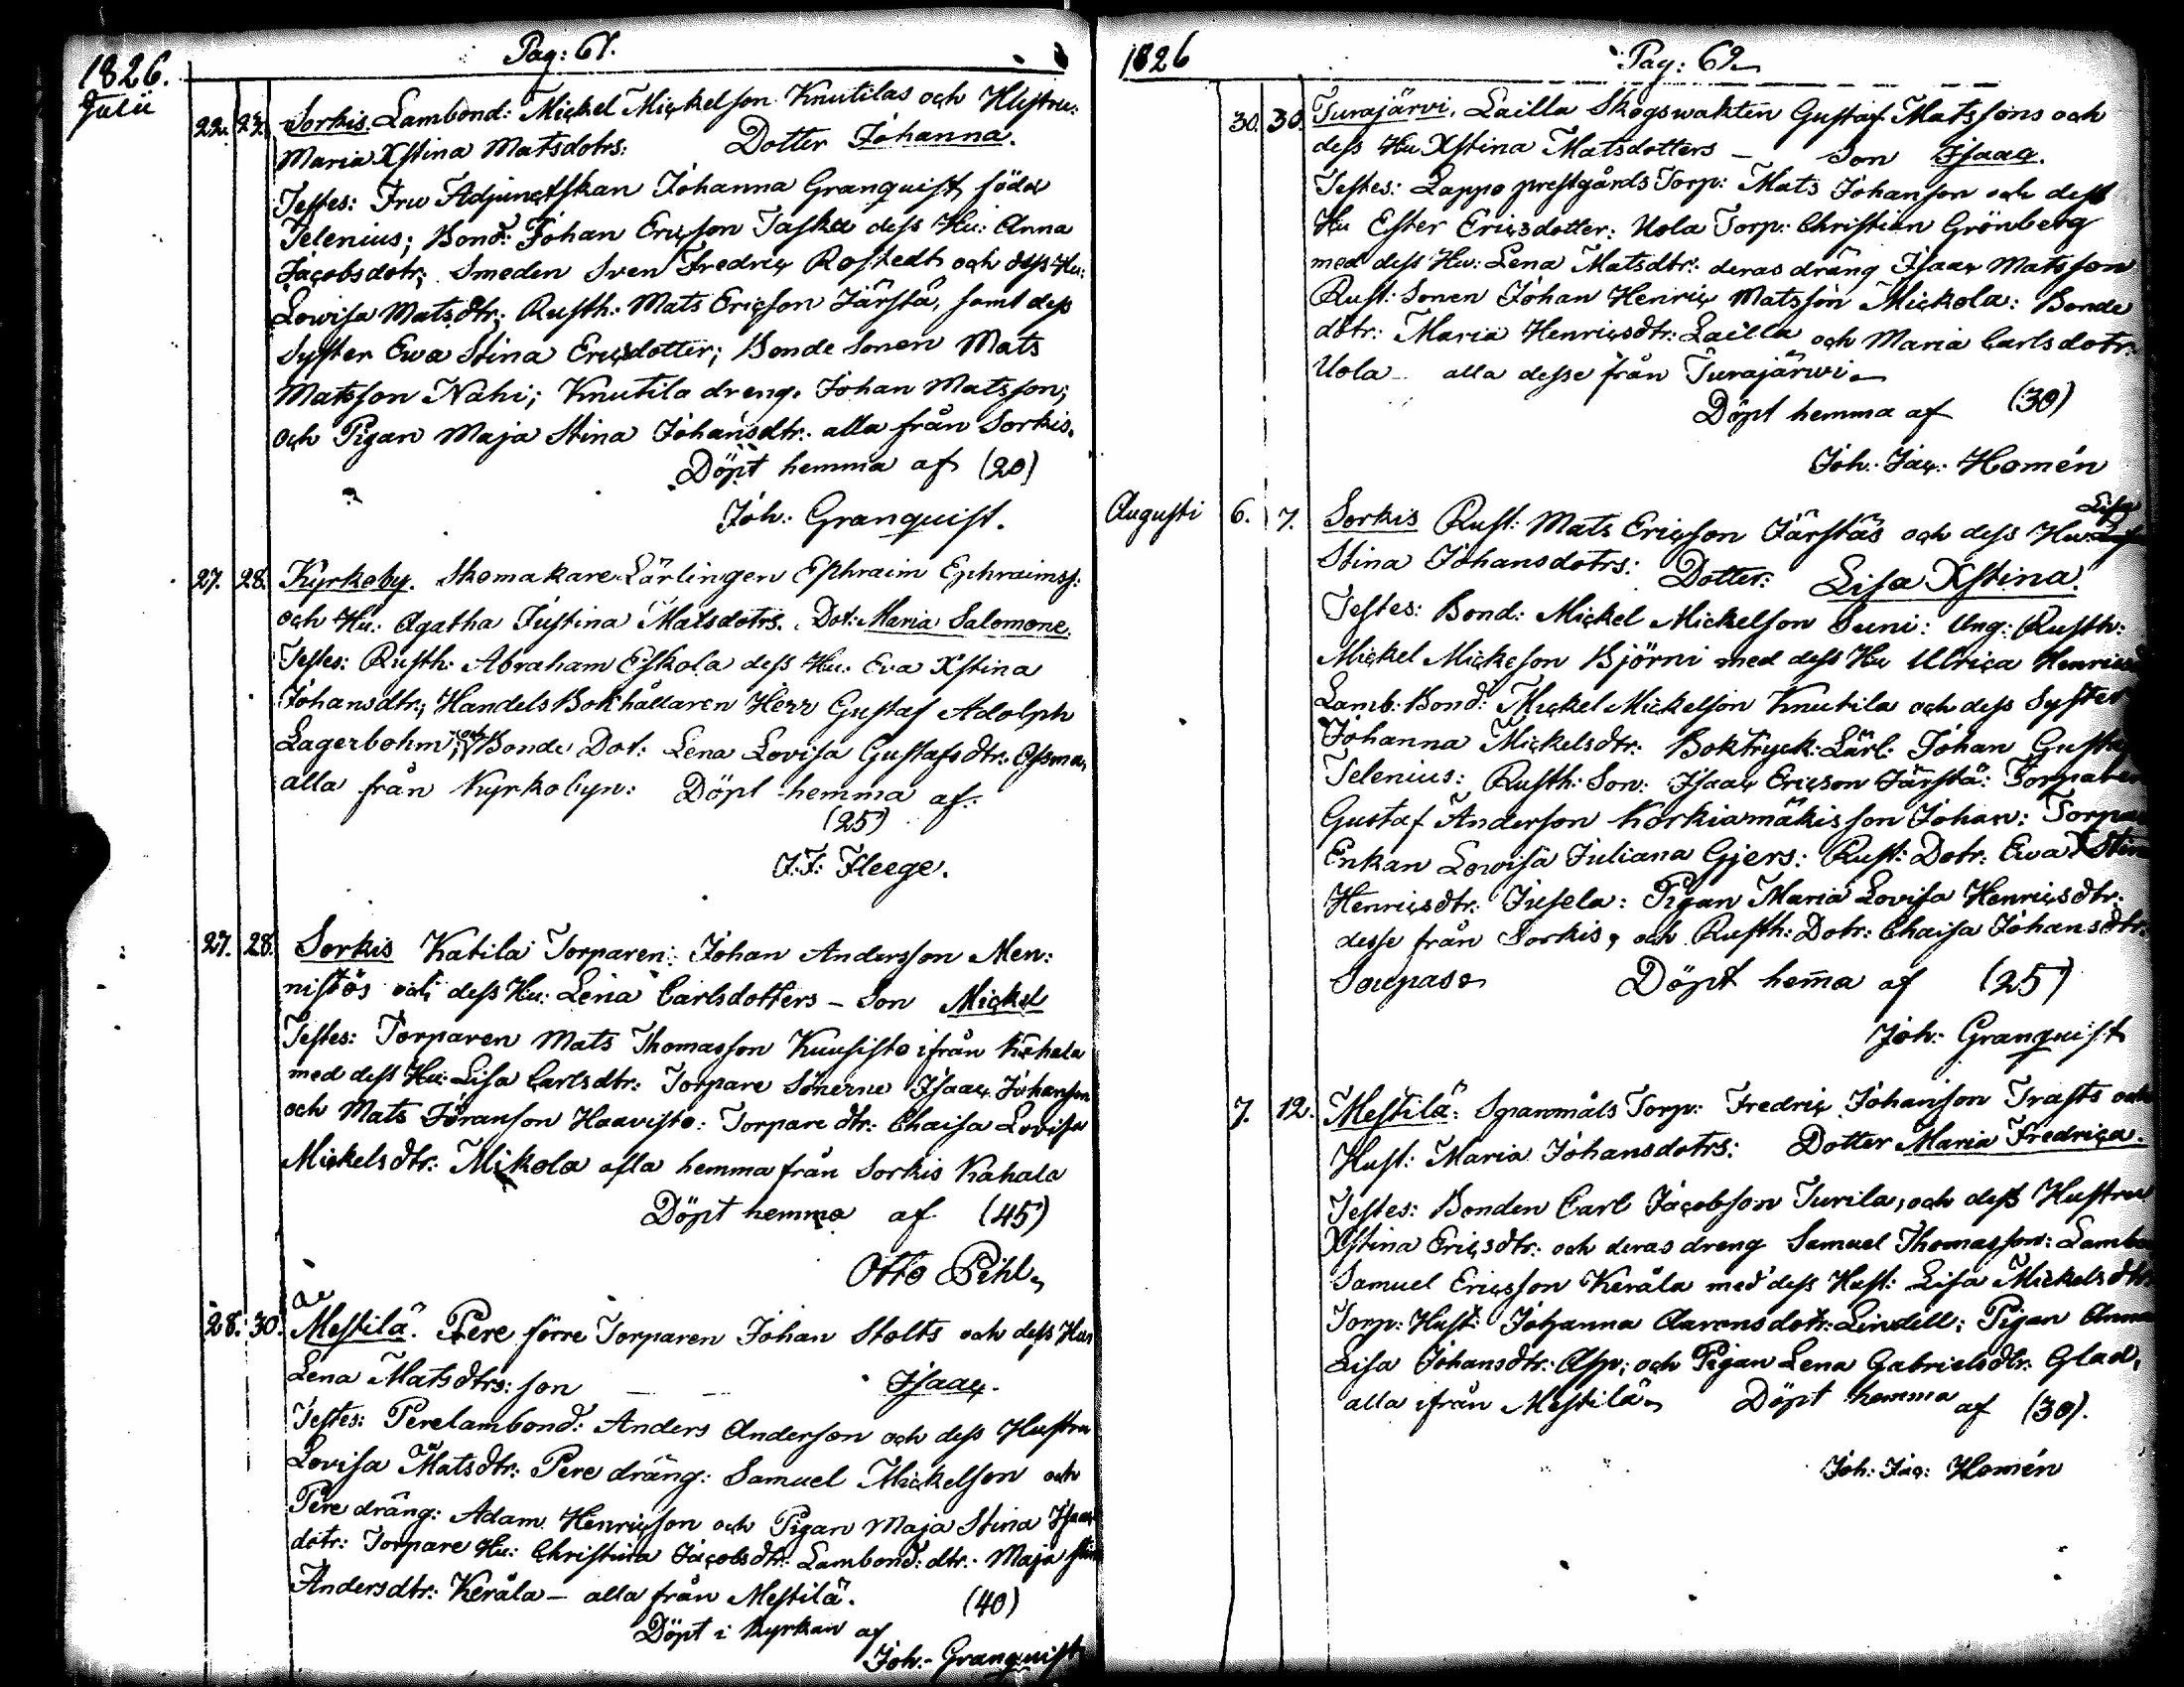 1826.
Pag: 61.
Julii
22. 23. Sorkis. Lambond: Mickel Mickelson Knutilas och Hustru:
Maria Xstina Matsdotrs: Dotter Johanna.
Testes: Fru Adjunctskan Johanna Granquist född
Telenius; Bond: Johan Ericson Taska dess Hu: Anna
Jacobsdotr; Smeden Sven Fredric Rostedt och dess Hu:
Lowisa Matsdtr; Rusth: Mats Ericson Järstä, samt dess
Syster Ewa Stina Ericsdotter; Bonde Sonen Mats
Matsson Nahi; Knutila dreng. Johan Matsson;
och Pigan Maja Stina Johansdtr. alla från Sorkis.
Döpt hemma af (20)
Joh: Granquist.
27. 28. Kyrkoby. Skomakare Lärlingen Ephraim Ephraimss:
och Hu: Agatha Justina Matsdotrs. Dot: Maria Salomone.
Testes: Rusth: Abraham Eskola dess Hu: Eva Xstina
Johansdtr; Handels Bokhållaren Herr Gustaf Adolph
Lagerbohm; och Bonde Dot: Lena Lovisa Gustafsdtr.
alla från Kyrkobyn: Döpt hemma af.
(25)
J.F: Fleege.
27. 28. Sorkis Katila Torparen: Johan Andersson Men:
nistös och dess Hu: Lena Carlsdotters - Son Mickel
Testes: Torparen Mats Thomasson Kuusisto ifrån Kahala
med dess Hu: Lisa Carlsdtr: Torpare Sönerne Isaac Johanson
och Mats Göranson Haavisto: Torpare dtr: Chaisa Lovisa
Mickelsdtr: Mikola alla hemma från Sorkis Kahala
Döpt hemma af (45)
Otto Pihl
28. 30. Mestilä. Pere förre Torparen Johan Stolts och dess Hus
Lena Matsdtrs: son - - Isaac.
Testes: Perelambond: Anders Anderson och dess Hustru
Lovisa Matsdtr: Pere dräng: Samuel Mickelson och
Pere dräng: Adam Henricson och Pigan Maja Stina Isaacs
dotr: Torpare Hu: Christina Jacobsdtr: Lambond: dtr: Maja Stina
Andersdtr: Keräla - alla från Mestilä. (40)
Döpt i Kyrkan af
Joh: Granquist
1826
Pag: 62
30. 30. Turajärvi, Lailla Skogswakten Gustaf Matssons och
dess Hu Xstina Matsdotters - Son Isaac.
Testes: Lappo prestgårds Torp: Mats Johanson och dess
Hu Ester Ericsdotter: Uola Torp: Christian Grönberg
med dess Hu: Lena Matsdtr: deras dräng Isaac Matsson
Rust: Sonen Johan Henric Matsson Mickola: Bonde
dotr: Maria Henricsdtr: Lailla och Maria Carlsdotr:
Uola - alla desse från Turajärwi
Döpt hemma af (30)
Joh: Jac: Homén
Augusti 6. 7. Sorkis Rust: Mats Ericson Järstäs och dess Hu: Lisa
Stina Johansdotrs: Dotter: Lisa Xstina.
Testes: Bond: Mickel Mickelson Suni: Ung: Rusth:
Mickel Mickelson Björni med dess Hu Ulrica Henricsd
Lamb: Bond: Mickel Mickelson Knutila och dess Syster
Johanna Mickelsdtr: Boktryck: Lärl: Johan Gustaf
Telenius: Rusth: Son: Isaac Ericson Järstä: Torparen
Gustaf Anderson Korkiamäkis son Johan: Torpar
Enkan Lowisa Juliana Gjers: Rust: Dotr: Ewa Stina
Henricsdtr: Jusela: Pigan Maria Lovisa Henricsdtr:
desse från Sorkis, och Rusth: Dotr: Chaisa Johansdtr:
Döpt hema af (25)
Joh: Granquist
7. 12. Mestilä: Spanmåls Torp: Fredric Johanson Trasts och
Hust: Maria Johansdotrs: Dotter Maria Fredrica.
Testes: Bonden Carl Jacobson Turila, och dess Hustru
Xstina Ericsdtr: och deras dreng Samuel Thomasson: Lambo
Samuel Ericsson Keräla med dess Hust: Lisa Mickelsdtr
Torp: Hust: Johanna Aaronsdotr: Lindell: Pigan Anna
Lisa Johansdtr: Asp; och Pigan Lena Gabrielsdtr: Glad,
alla ifrån Mestilä Döpt hemma af (30).
Joh: Jac: Homén